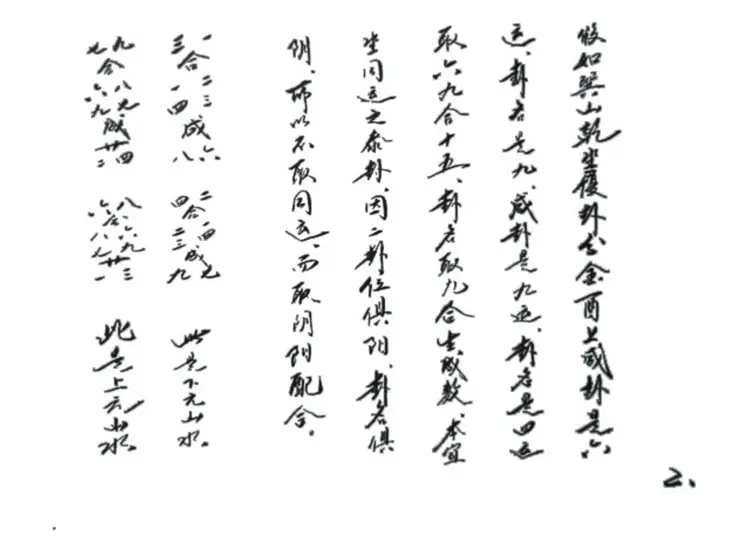 假如巽山乾坐復卦分金酉上咸卦是六
运、卦名是九、咸卦是九运、卦名是四运
取六九合十五、卦名取九合生成数、本宜
坐同运之泰卦、因二卦位俱阳、卦名俱
阴、所以不取同运、而取阴阳配合。
一 二三 六 二 一四 七
合 成 合 成 此是下元山水。
三 一四 八 四 二三 九
九 八七 廿四 八 六九 廿三
合 成 合 此是上元山水。
七 六九 廿二 六 八七 廿一
2、